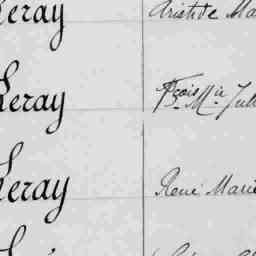 Leray Aristide Ma
Leray Fçois Mie Jul
Leray René Marie